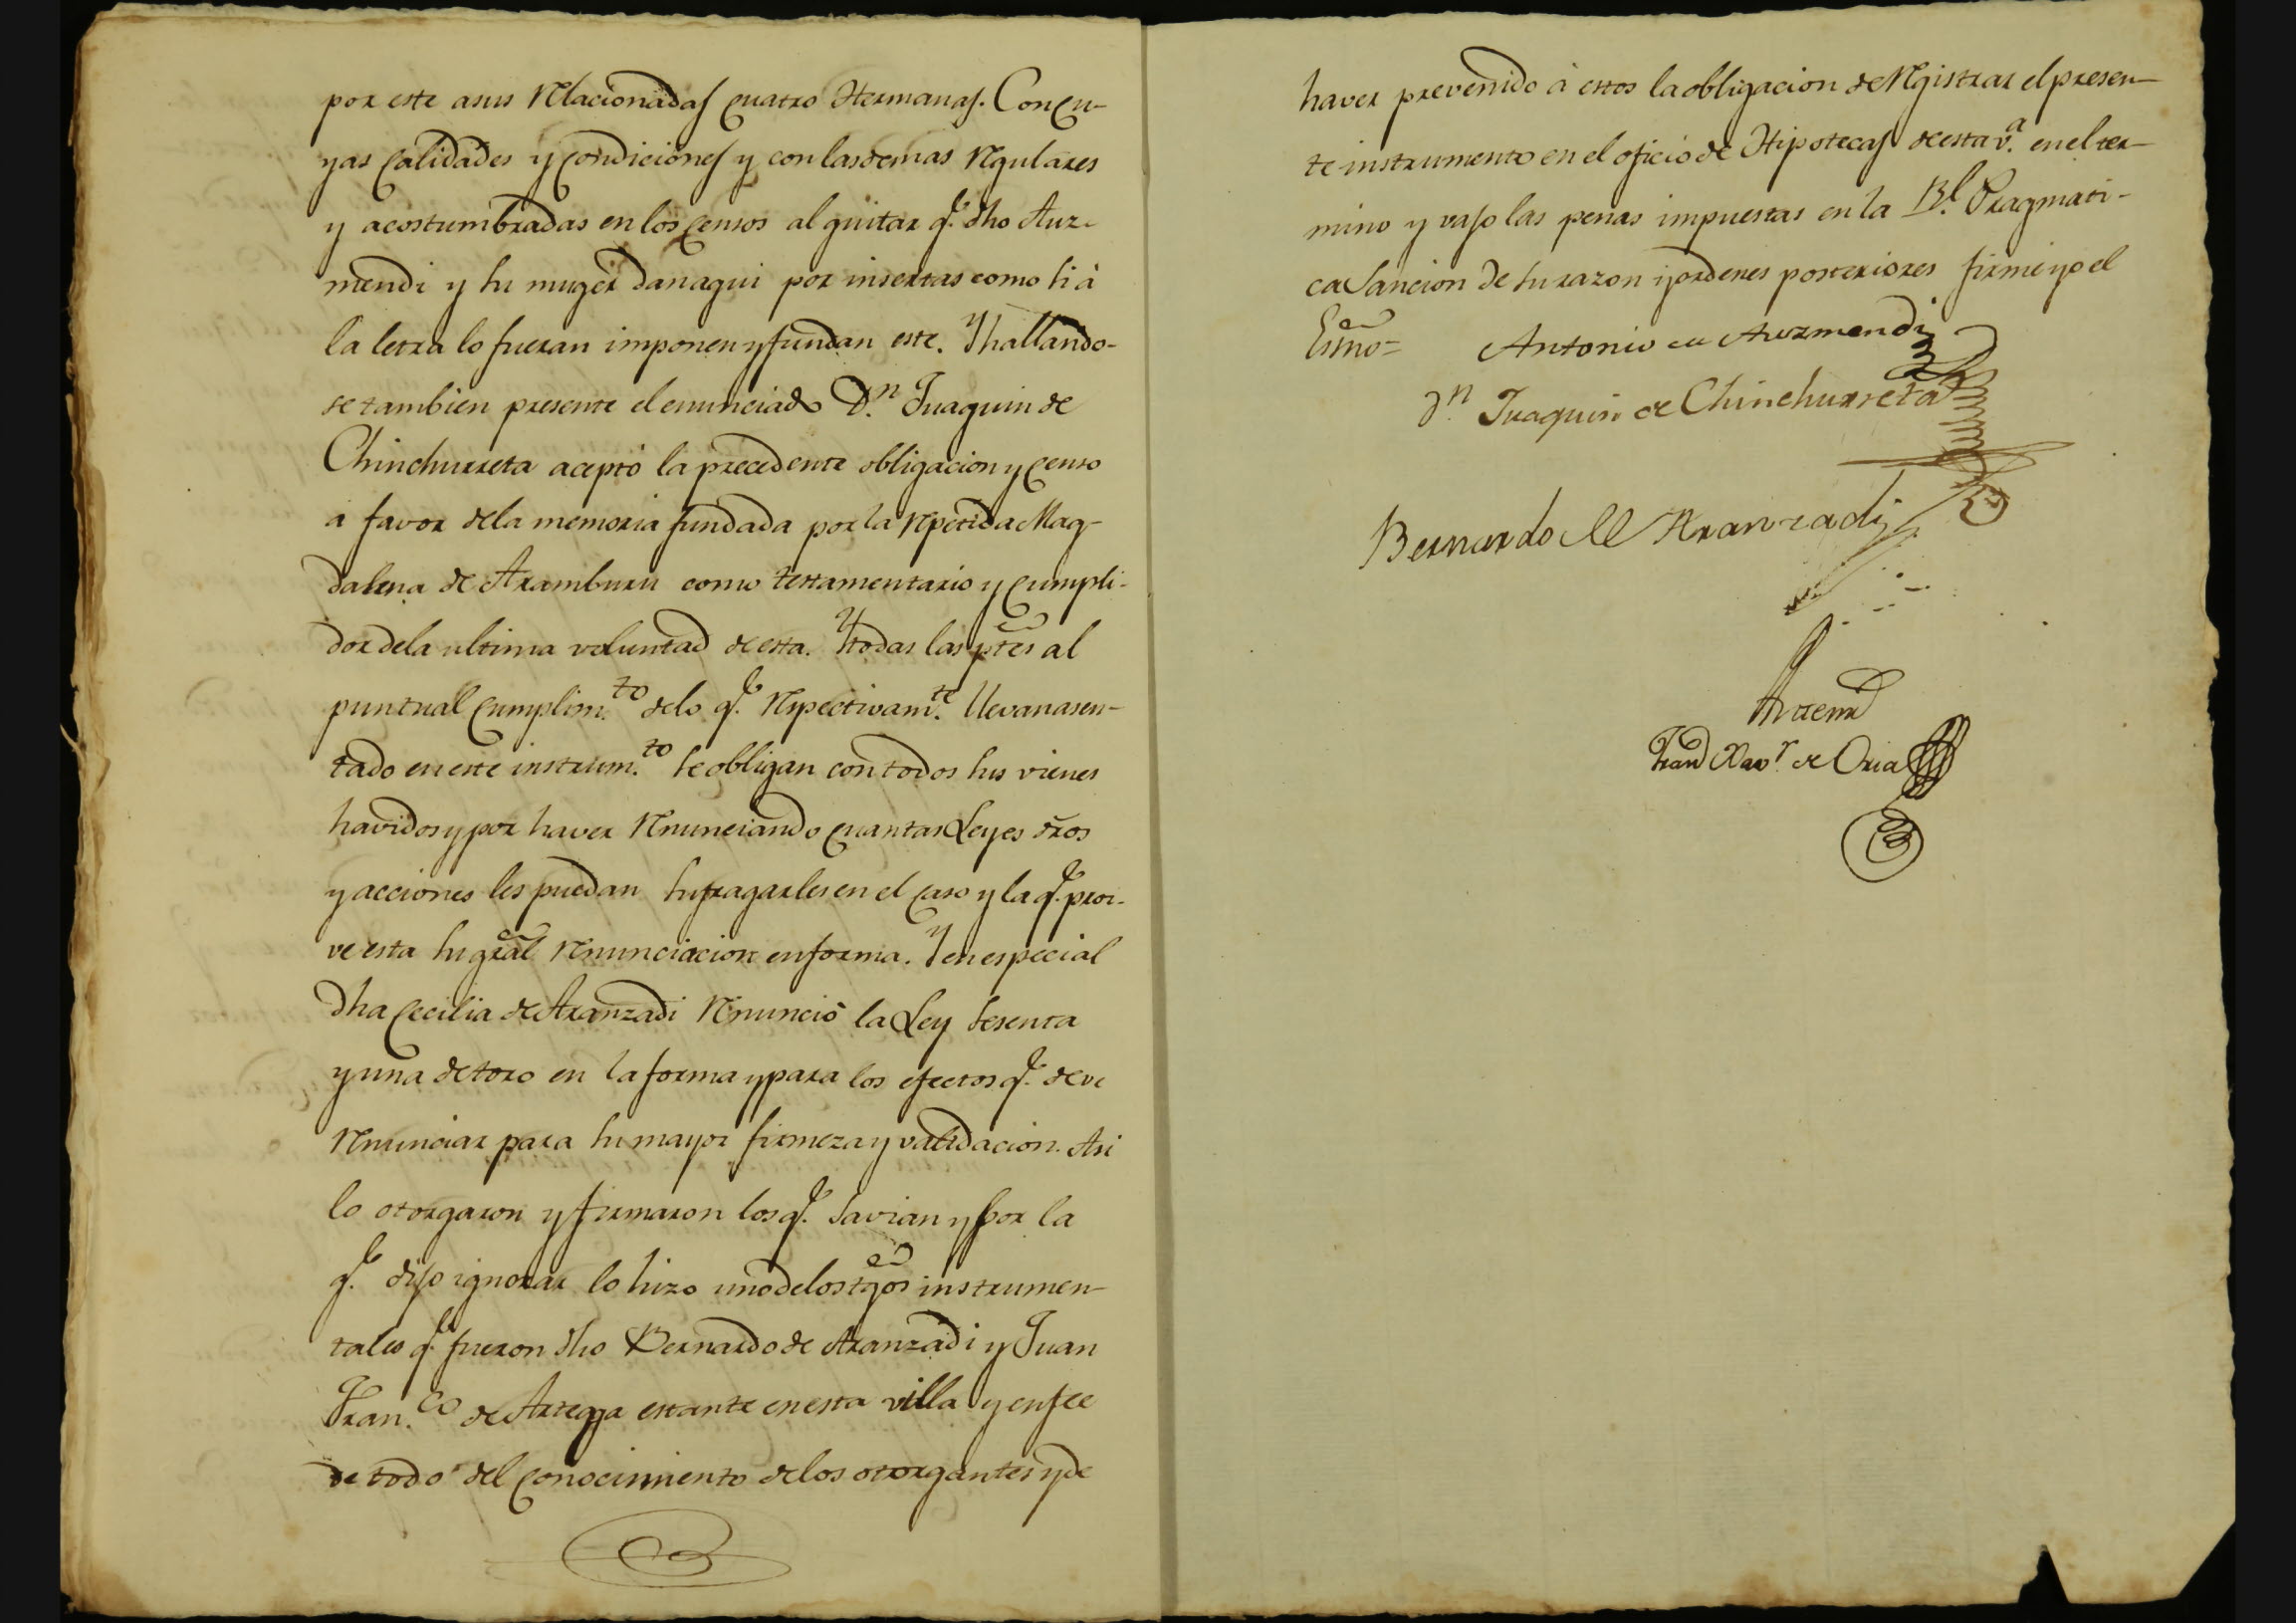 por este asus Relacionadas quatro Hermanas. Con cu-
yas Calidades y Condiciones y con las demas Regulares
y acostumbradas en los Censos al quitar q.e dho Auz-
mendi y su muger dan aqui por insertas como si à
la letra lo fueran imponen y fundan este. Y hallando-
se tambien presente el enunciado D.n Juaquin de
Chinchurreta aceptò la precedente obligacion y Censo
a favor de la memoria fundada por la Repetida Mag-
dalena de Aramburu como testamentario y Cumpli-
dor dela ultima voluntad de esta. Y todas las ptes al
puntual Cumplim.to delo q.e Respectivam.te llevan asen-
tado en este instrum.to se obligan con todos sus vienes
havidos y por haver Renunciando quantas Leyes dr̃os
y acciones les puedan sufragarles en el caso y la q.e proi-
ve esta su gr̃al Renunciacion en forma. Y en especial
Dha Cecilia de Aranzadi Renunciò la Ley sesenta
y una de toro en la forma y para los efectos q.e deve
Renunciar para su mayor firmeza y validacion. Asi
lo otorgaron y firmaron los q.e savian y por la
q.e dijo ignorar lo hizo uno de los tgos instrumen-
tales q.e fueron dho Bernardo de Aranzadi y Juan
Fran.co de Artega estante en esta villa y en fee
de todo del Conocimiento de los otorgantes y de
haver prevenido à estos la obligacion de Registrar el presen-
te instrumento en el oficio de Hipotecas de esta v.a en el ter-
mino y vajo las penas impuestas en la R.l Pragmati-
ca Sancion de su razon y ordenes posteriores firmè yo el
Esno=
Antonio de Auzmendi
D.n Juaquin de Chinchurreta
Bernardo de Aranzadi
Antemi
Fran.co Xav.r de Oria